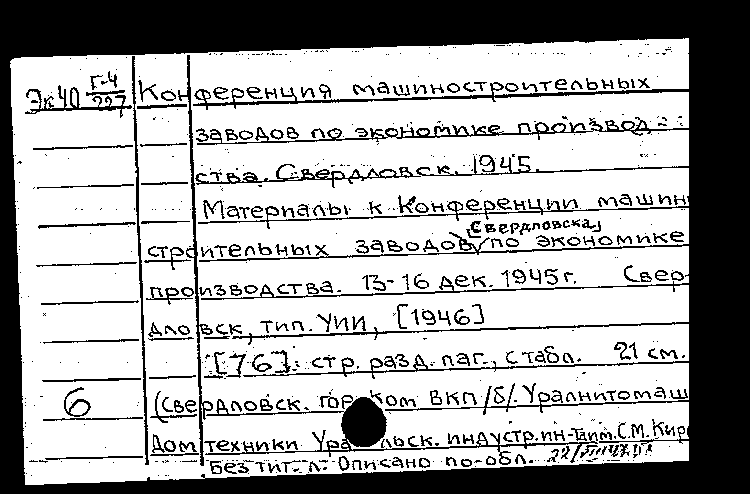 Эк40 Г-4/227 Конференция машиностроительных
заводов по экономике производ-
ства. Свердловск. 1945.
Материалы к Конференции машин
строительных заводов [Свердловска] по экономике
производства. 13-16 дек. 1945г. Свер-
дловск, тип. УИИ, [1946]
[76] стр. разд. паг., с табл. 21 см.
6 (Свердловск. гор ком ВКП/б/. Уралнитомаш
Дом техники Ура льск. индустр. ин-та им. С.М. Кир
Без тит. л. Описано по обл.